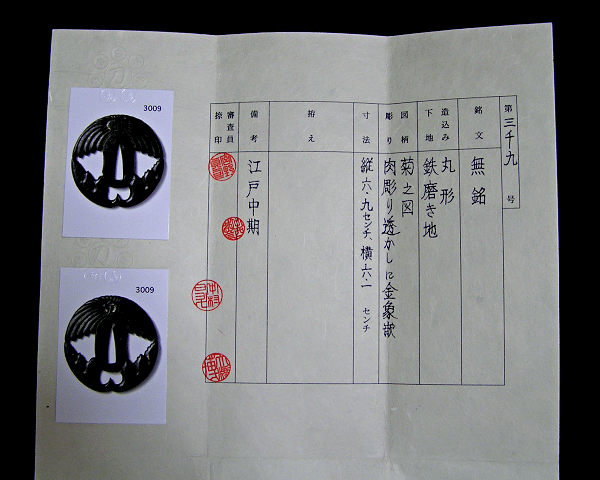 第三千九号
銘文 無銘
造込み 丸形
下地 鉄磨き地
図柄 菊之図
彫り 肉彫り透かしに金象嵌
寸法 縦六・九センチ、横六・一センチ
拵え
備考 江戸中期
審査員
捺印
3009
3009